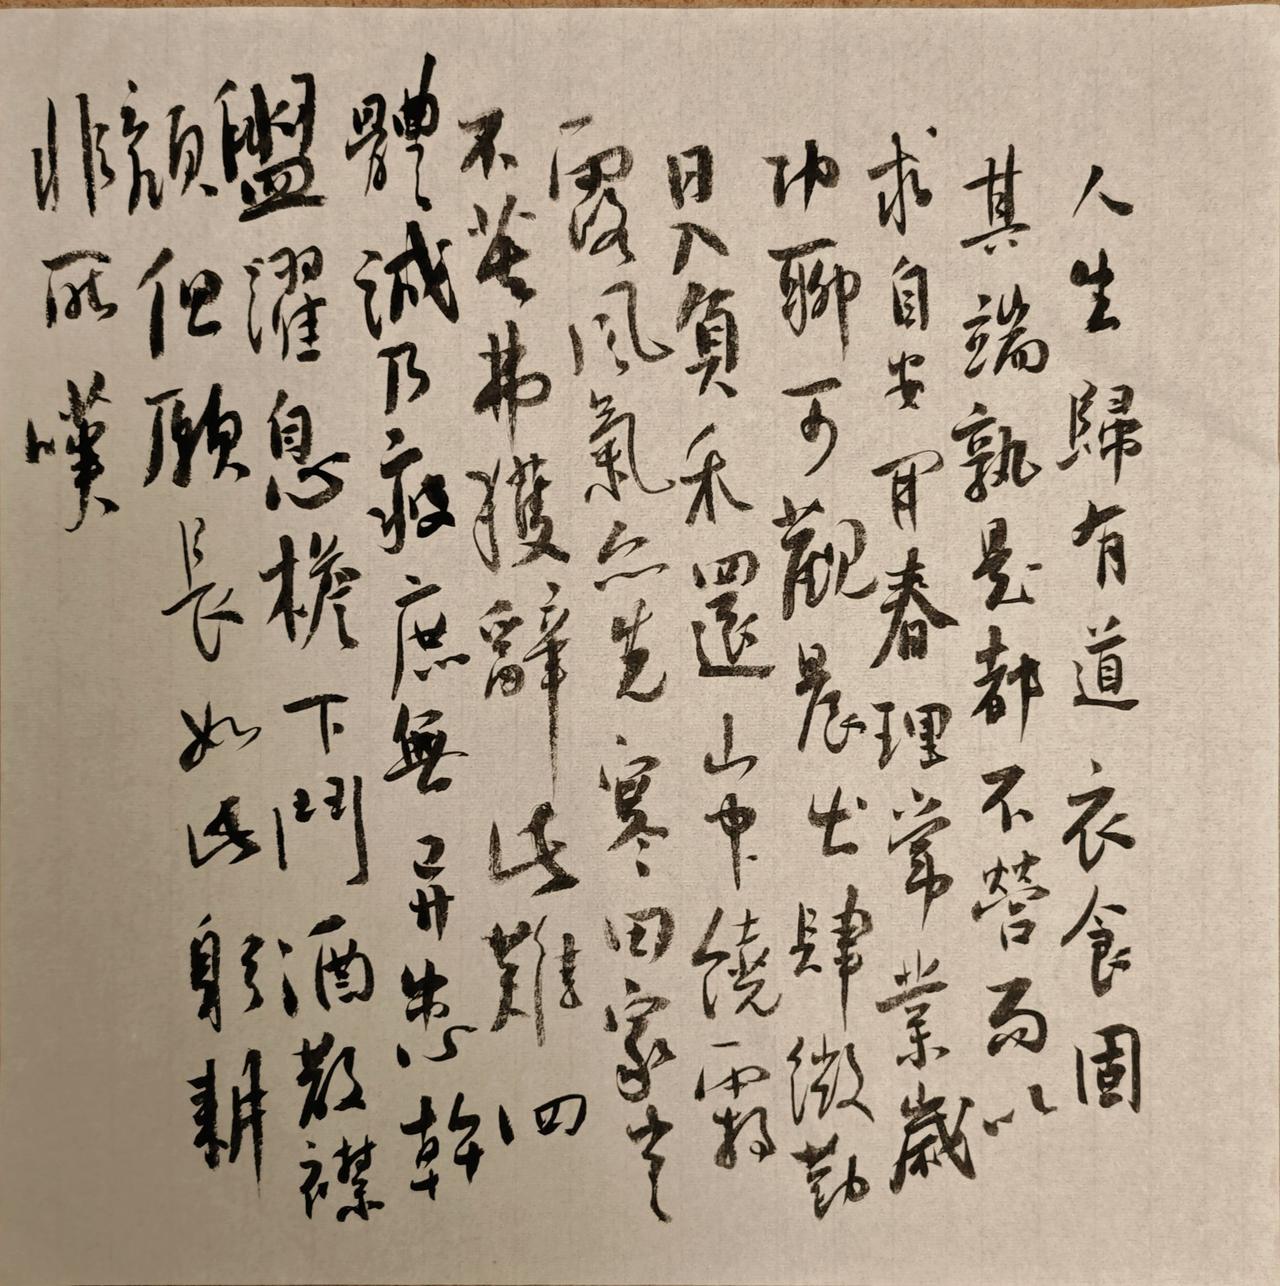 人生歸有道衣食固
其端孰是都不營而以
求自安開春理常業歲
功聊可觀晨出肆微勤
日入負禾還山中饒霜
露風氣亦先寒田家豈
不苦弗獲辭此難四
體誠乃疲庶無異患幹
盥濯息檐下鬥酒散襟
顏但願長如此躬耕
非所嘆